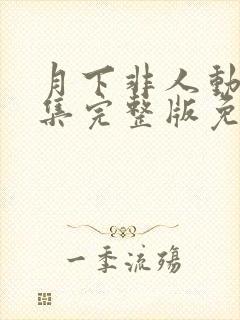 月下非人動
集完整版免
一季流殤